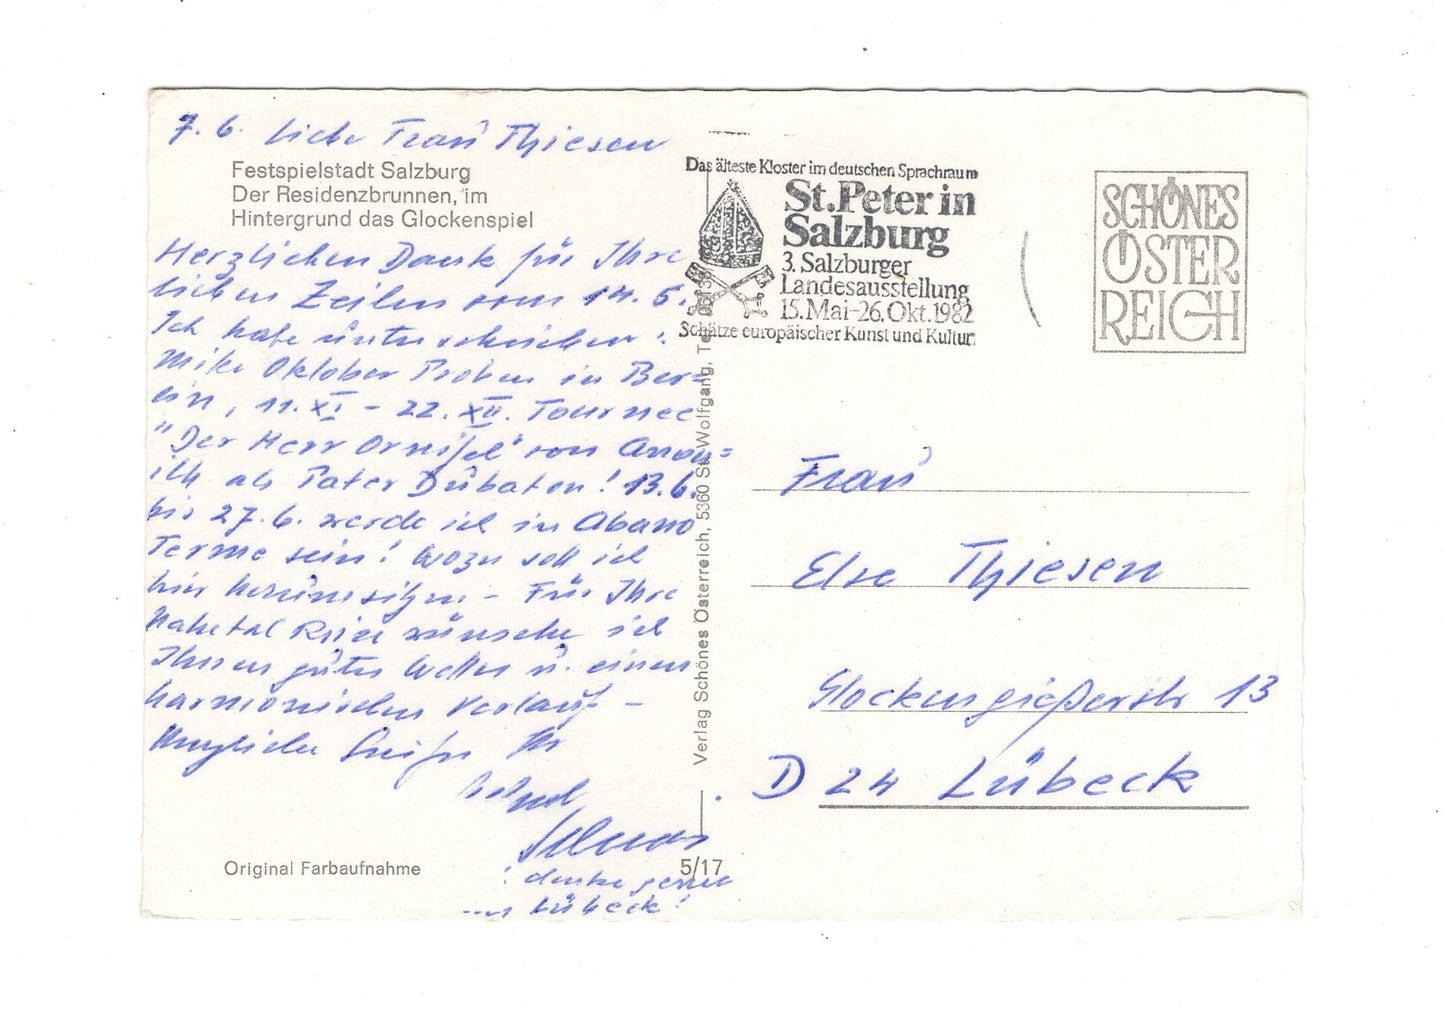 7. 6. Liebe Frau Thiesen
Festspielstadt Salzburg
Der Residenzbrunnen, im
Hintergrund das Glockenspiel
Herzlichen Dank für Ihre
lieben Zeilen vom 14. 5.
Ich habe unterschrieben:
Mitte Oktober Proben in Ber=
lin, 11. XI - 22. XII. Tournee
"Der Herr Ornifel" von Anou=
ilh als Pater Dubaton! 13.6.
bis 27.6. werde ich in Abano
Terme sein! Wozu soll ich
hier herumsitzen - Für Ihre
Nahetal Reise wünsche ich
Ihnen gutes Wetter u. einen
harmonischen Verlauf -
Herzliche Grüße Ihr
! denke gerne
Lübeck!
Original Farbaufnahme
5/17
Verlag Schönes Österreich, 5360 St. Wolfgang, Te
Das älteste Kloster im deutschen Sprachraum
St. Peter in
Salzburg
3. Salzburger
Landesausstellung
15. Mai-26. Okt. 1982
Schätze europäischer Kunst und Kultur
SCHÖNES
ÖSTER
REICH
Frau
Else Thiesen
Glockengießerstr 13
D 24 Lübeck